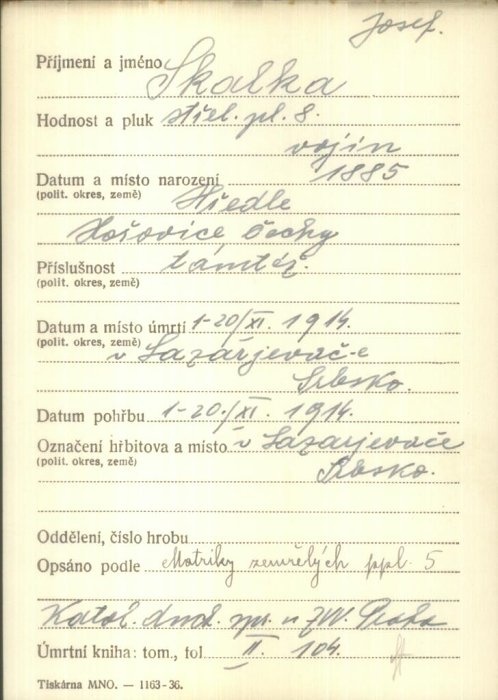 Josef.
Příjmení a jméno Skalka
Hodnost a pluk střel. pl. 8.
vojín
Datum a místo narození 1885
(polit. okres, země) Hředle
Hořovice Čechy
Příslušnost tamtéž.
(polit. okres, země)
Datum a místo úmrtí 1-20/XI. 1914.
(polit. okres, země) v Lazarjevač-e
Srbsko.
Datum pohřbu 1-20./XI. 1914.
Označení hřbitova a místo v Lazarjevače
(polit. okres, země) Srbsko.
Oddělení, číslo hrobu
Opsáno podle Matriky zemřelých ppl. 5
Katol. duch. spr. u ZVV. Praha
Úmrtní kniha: tom., fol. II. 104.
Tiskárna MNO. — 1163-36.